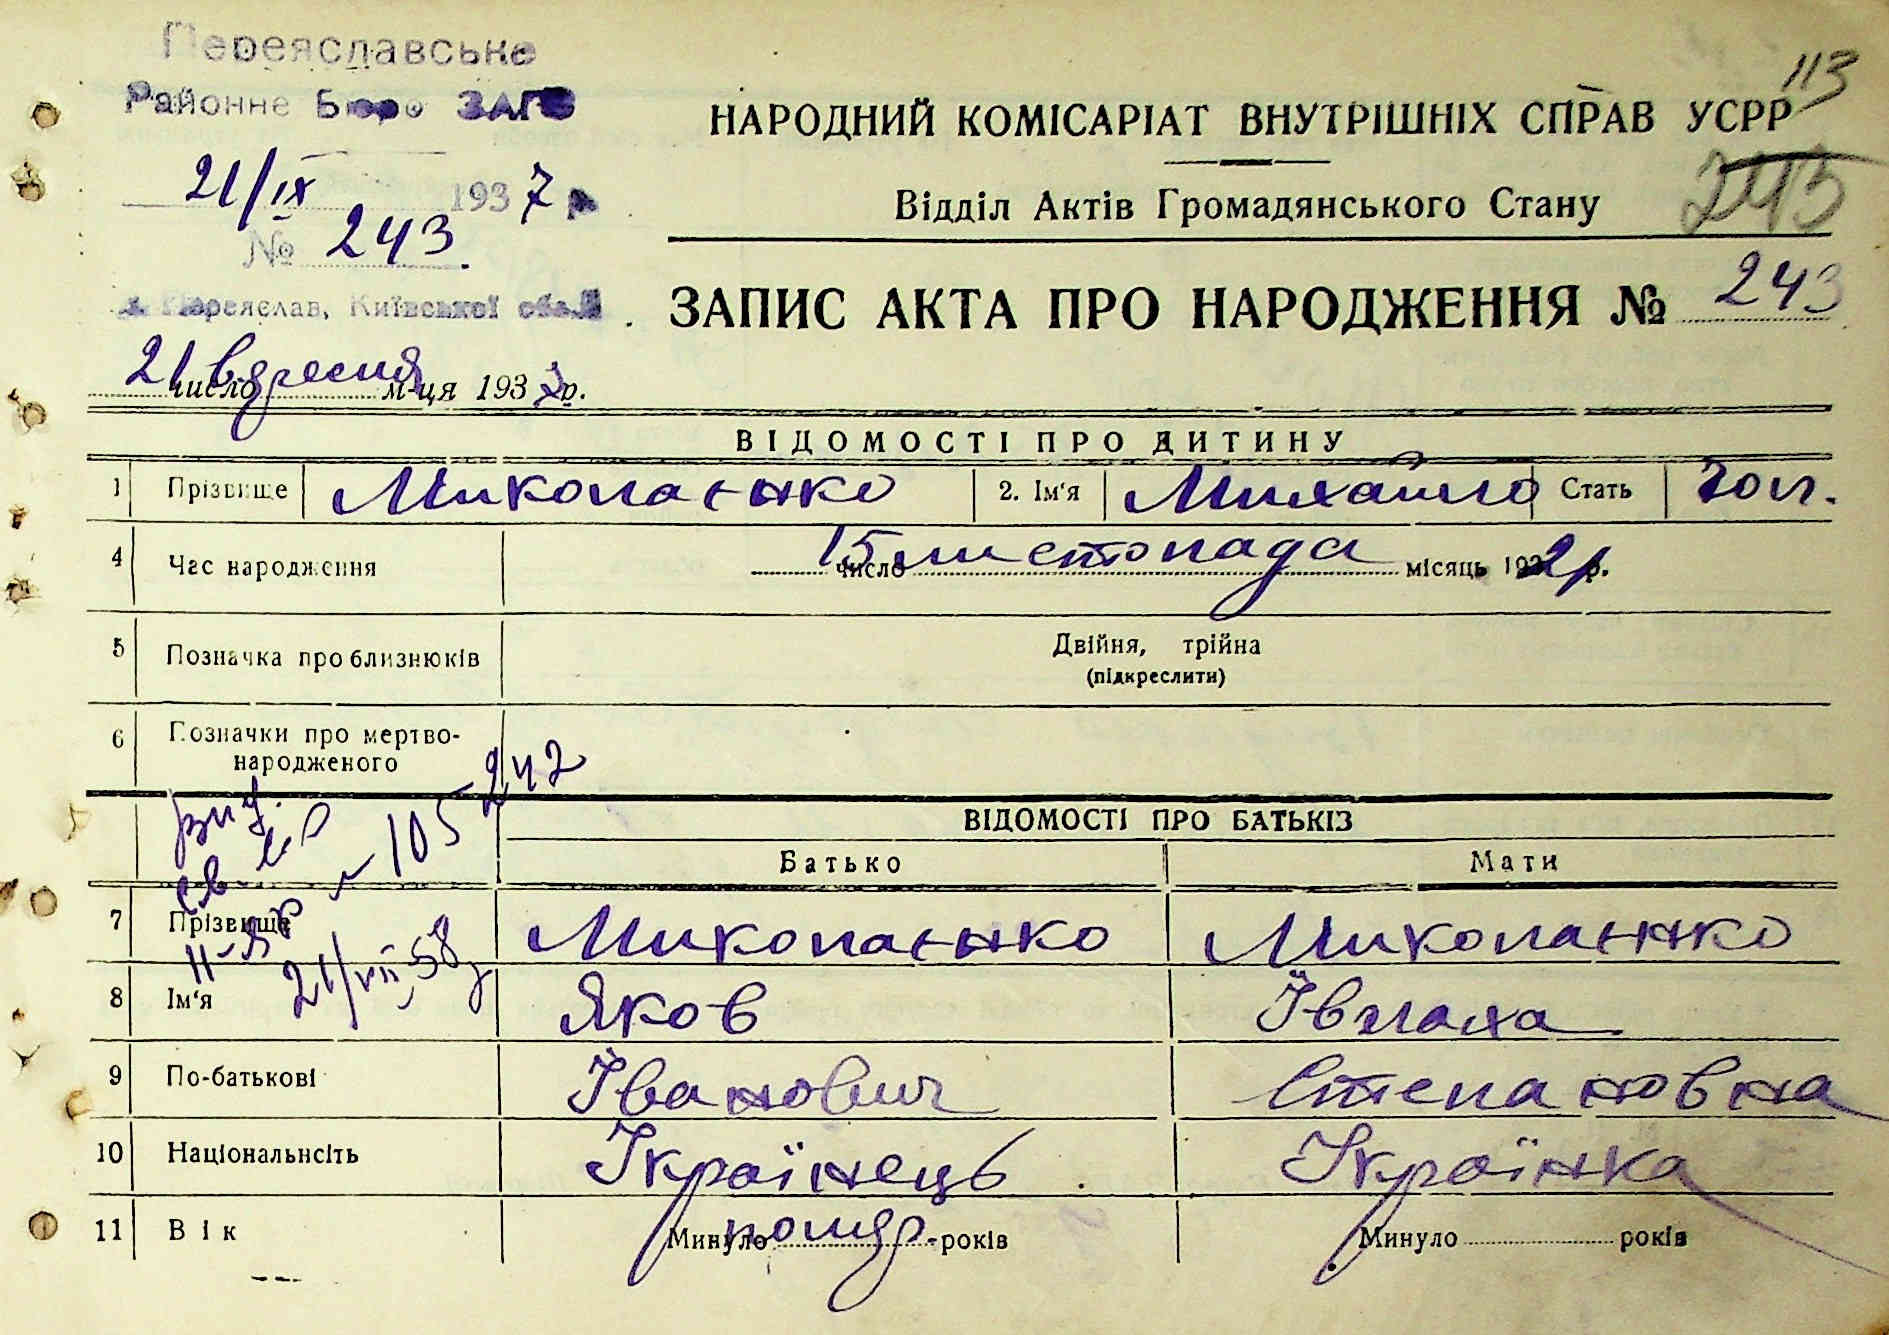 113
Переяславське
Районне Бюро ЗАГС
21/IX 1937 р
№ 243.
м. Переяслав, Київської обл.
НАРОДНИЙ КОМІСАРІАТ ВНУТРІШНІХ СПРАВ УСРР
Відділ Актів Громадянського Стану
243
ЗАПИС АКТА ПРО НАРОДЖЕННЯ № 243
21 число вересня м-ця 1937 р.
ВІДОМОСТІ ПРО ДИТИНУ
1 Прізвище Миколаєнко 2. Ім‘я Михайло Стать чол.
4 Час народження 15 число листопада місяць 1921 р.
5 Позначка про близнюків Двійня, трійна
(підкреслити)
6 Позначки про мертво-
народженого
242
вид. св-во
ІІ-ЯР № 105
21/VII 58 р
ВІДОМОСТІ ПРО БАТЬКІВ
Батько Мати
7 Прізвище Миколаєнко Миколаєнко
8 Ім‘я Яков Івгла
9 По-батькові Іванович Степановна
10 Національнсіть Українець Українка
11 Вік Минуло помер років Минуло років